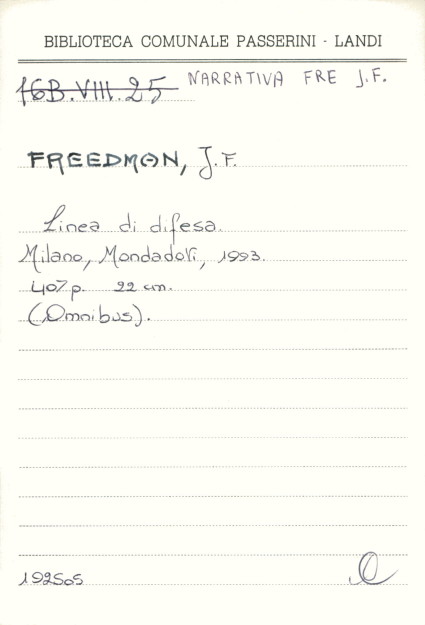 BIBLIOTECA COMUNALE PASSERINI - LANDI
16B.VIII.25 NARRATIVA FRE J.F.
FREEDMAN, J.F.
Linea di difesa.
Milano, Mondadori, 1993.
407 p. 22 cm.
(Omnibus).
192505